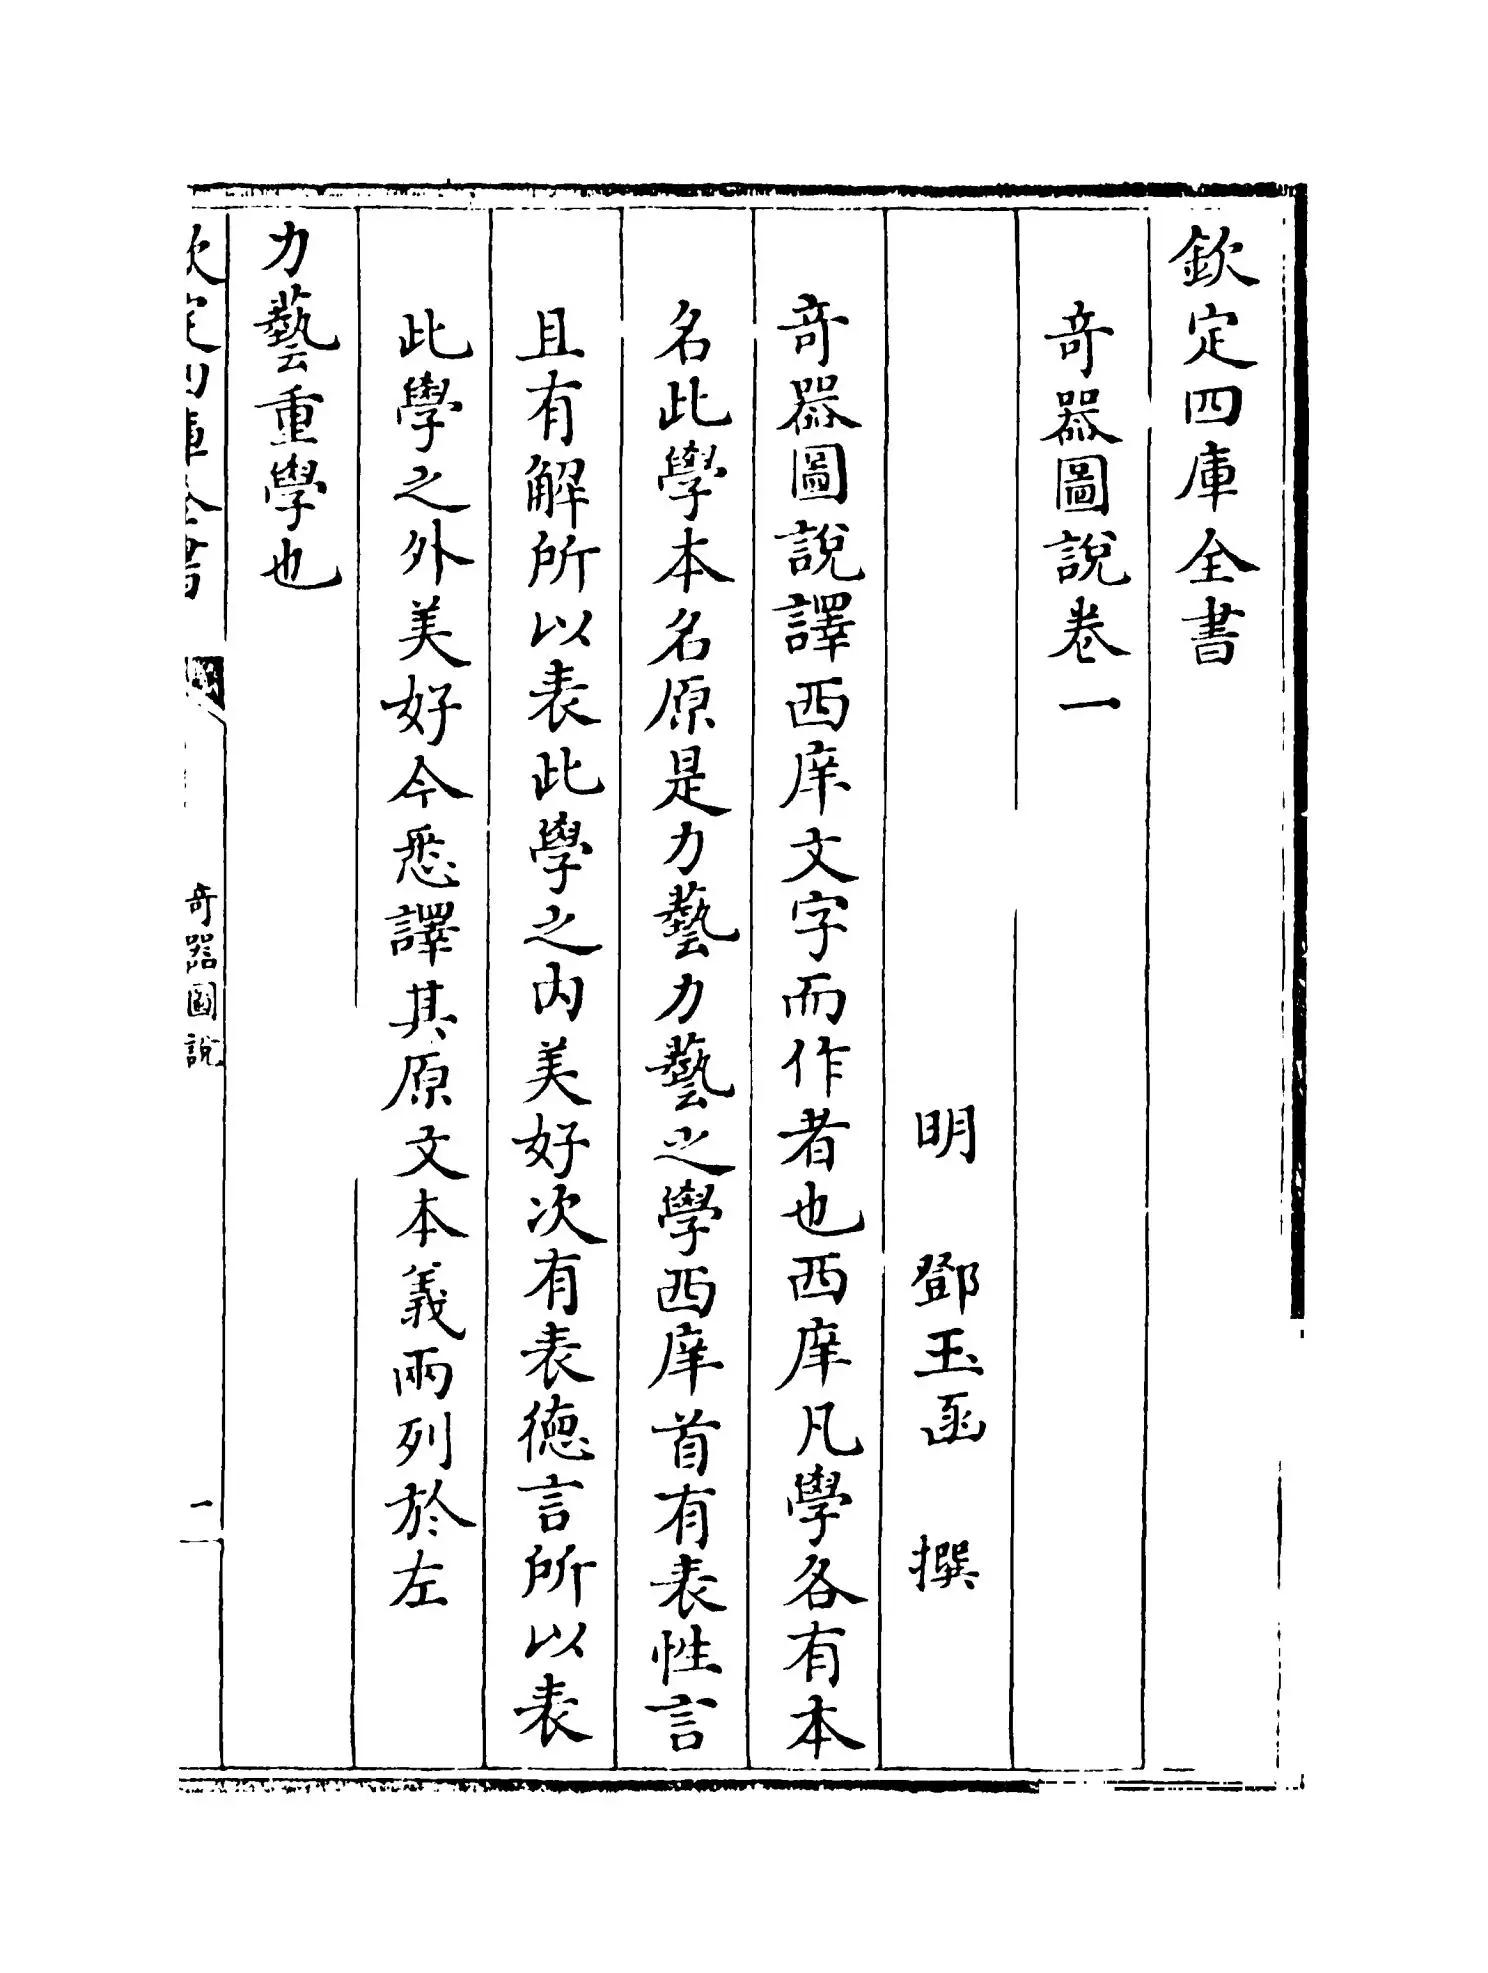 欽定四庫全書
奇器圖說卷一
明 鄧玉函 撰
奇器圖說譯西庠文字而作者也西庠凡學各有本
名此學本名原是力藝力藝之學西庠首有表性言
且有解所以表此學之內美好次有表德言所以表
此學之外美好今悉譯其原文本義兩列於左
力藝重學也
欽定四庫全書
奇器圖說
一